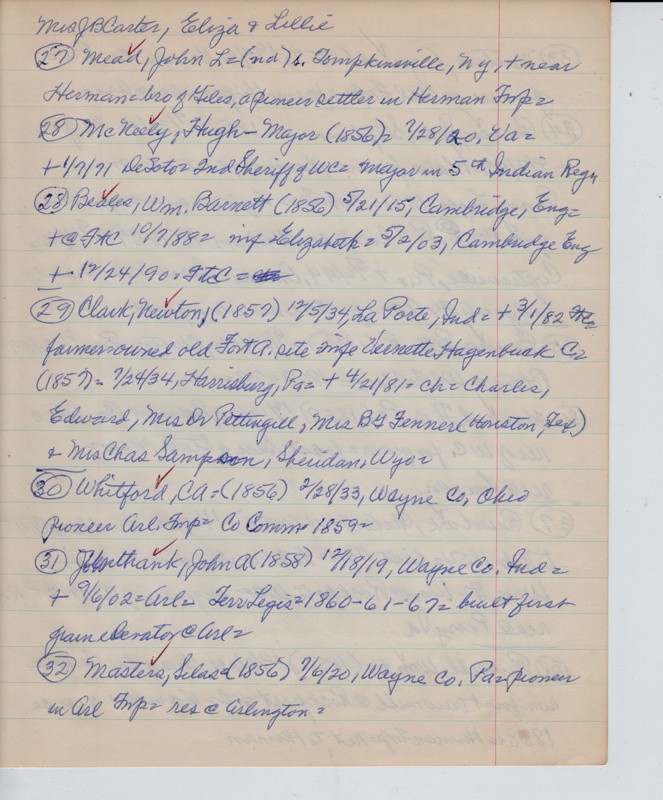 Mrs J B Carter, Eliza & Lillie
27 Mead, John L = (nd) b. Tompkinsville, Ny, + near
Herman = bro of Giles, a pioneer settler in Herman Twp =
28 McNeely, Hugh - Major (1856) = 7/28/20, Va =
+ 1/7/71 DeSoto = 2nd Sheriff of WC = Major in 5th Indian Regn
28 Beales, Wm. Barnett (1856) 5/21/15, Cambridge, Eng =
+ @ FtC 10/7/88 = Elizabeth = 5/2/03, Cambridge Eng
+ 12/24/90 = FtC =
29 Clark, Newton, (1857) 12/5/34, La Porte, Ind = + 3/1/82
farmer owned old Fort A. site Vernette Hagenbuck C
(1857) = 7/24/34, Harrisburg, Pa = + 4/21/81 = ch = Charles,
Edward, Mrs Dr Pettingill, Mrs B F Fenner (Houston, Tex.)
& Mrs Chas Sampson, Sheridan, Wyo =
30 Whitford, CA = (1856) 2/28/33, Wayne Co, Ohio
pioneer Arl. Twp = Co Comm = 1859 =
31 Unthank, John A (1858) 12/18/19, Wayne Co. Ind =
+ 9/6/02 = Arl = Terr Legis = 1860-61-67 = built first
grain elevator @ Arl =
32 Masters, Silas = (1856) 7/6/20, Wayne Co. Pa = pioneer
in Arl Twp = res @ Arlington =